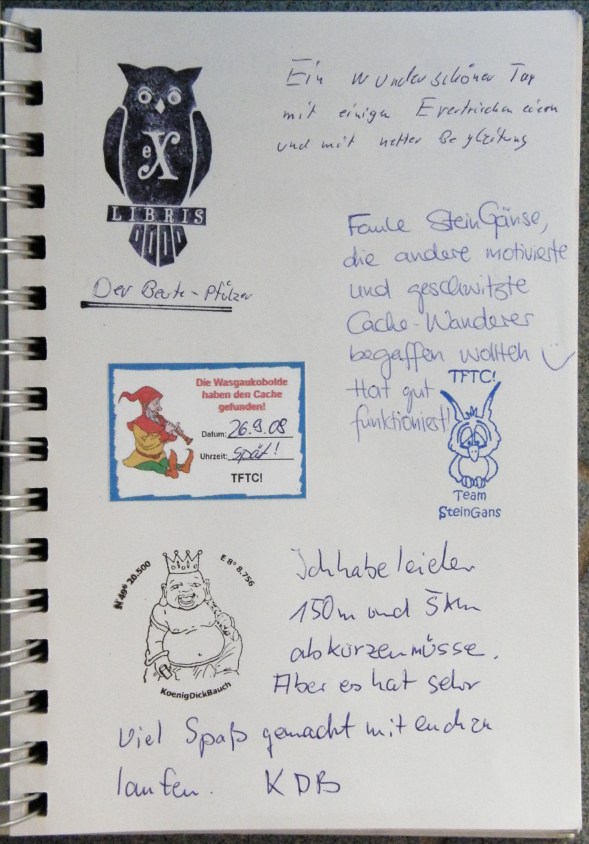 eX
LIBRIS
Ein wunderschöner Tag
mit einigen
und mit netter Begleitung
Der Beute-Pfälzer
Faule SteinGänse,
die andere motivierte
und geschwitzte
Cache-Wanderer
begaffen wollten
Hat gut
funktioniert!
TFTC!
Team
SteinGans
Die Wasgaukobolde
haben den Cache
gefunden!
Datum: 26.9.08
Uhrzeit: spät!
TFTC!
N 49° 20.500
E 8° 8.756
KoenigDickBauch
Ich habe leider
150m und 5km
abkürzen müsse.
Aber es hat sehr
viel Spaß gemacht mit euch zu
laufen. KDB